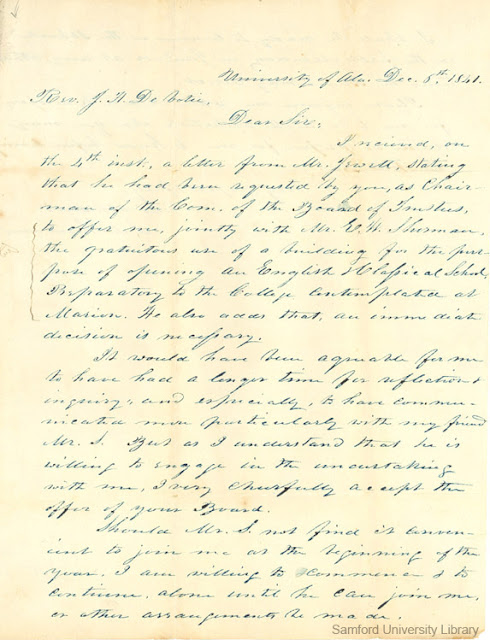 University of Ala. Dec. 8th. 1841.
Rev. J. H. De Votie,
Dear Sir,
I received, on
the 4th inst., a letter from Mr. Jewett, stating
that he had been requested by you, as Chair-
man of the Com. of the Board of Trustees,
to offer me, jointly with Mr. E. H. Sherman,
the gratuitous use of a building for the pur-
pose of opening an English & Classical School,
Preparatory to the College contemplated at
Marion. He also adds that, an immediate
decision is necessary.
It would have been agreeable for me
to have had a longer time for reflection &
inquiry; and especially, to have commu-
nicated more particularly with my friend
Mr. S. But as I understand that he is
willing to engage in the undertaking
with me, I very cheerfully accept the
offer of your Board.
Should Mr. S. not find it conven-
ient to join me at the beginning of the
year, I am willing to commence & to
continue, alone until he can join me,
or other arrangements be made.
Samford University Library